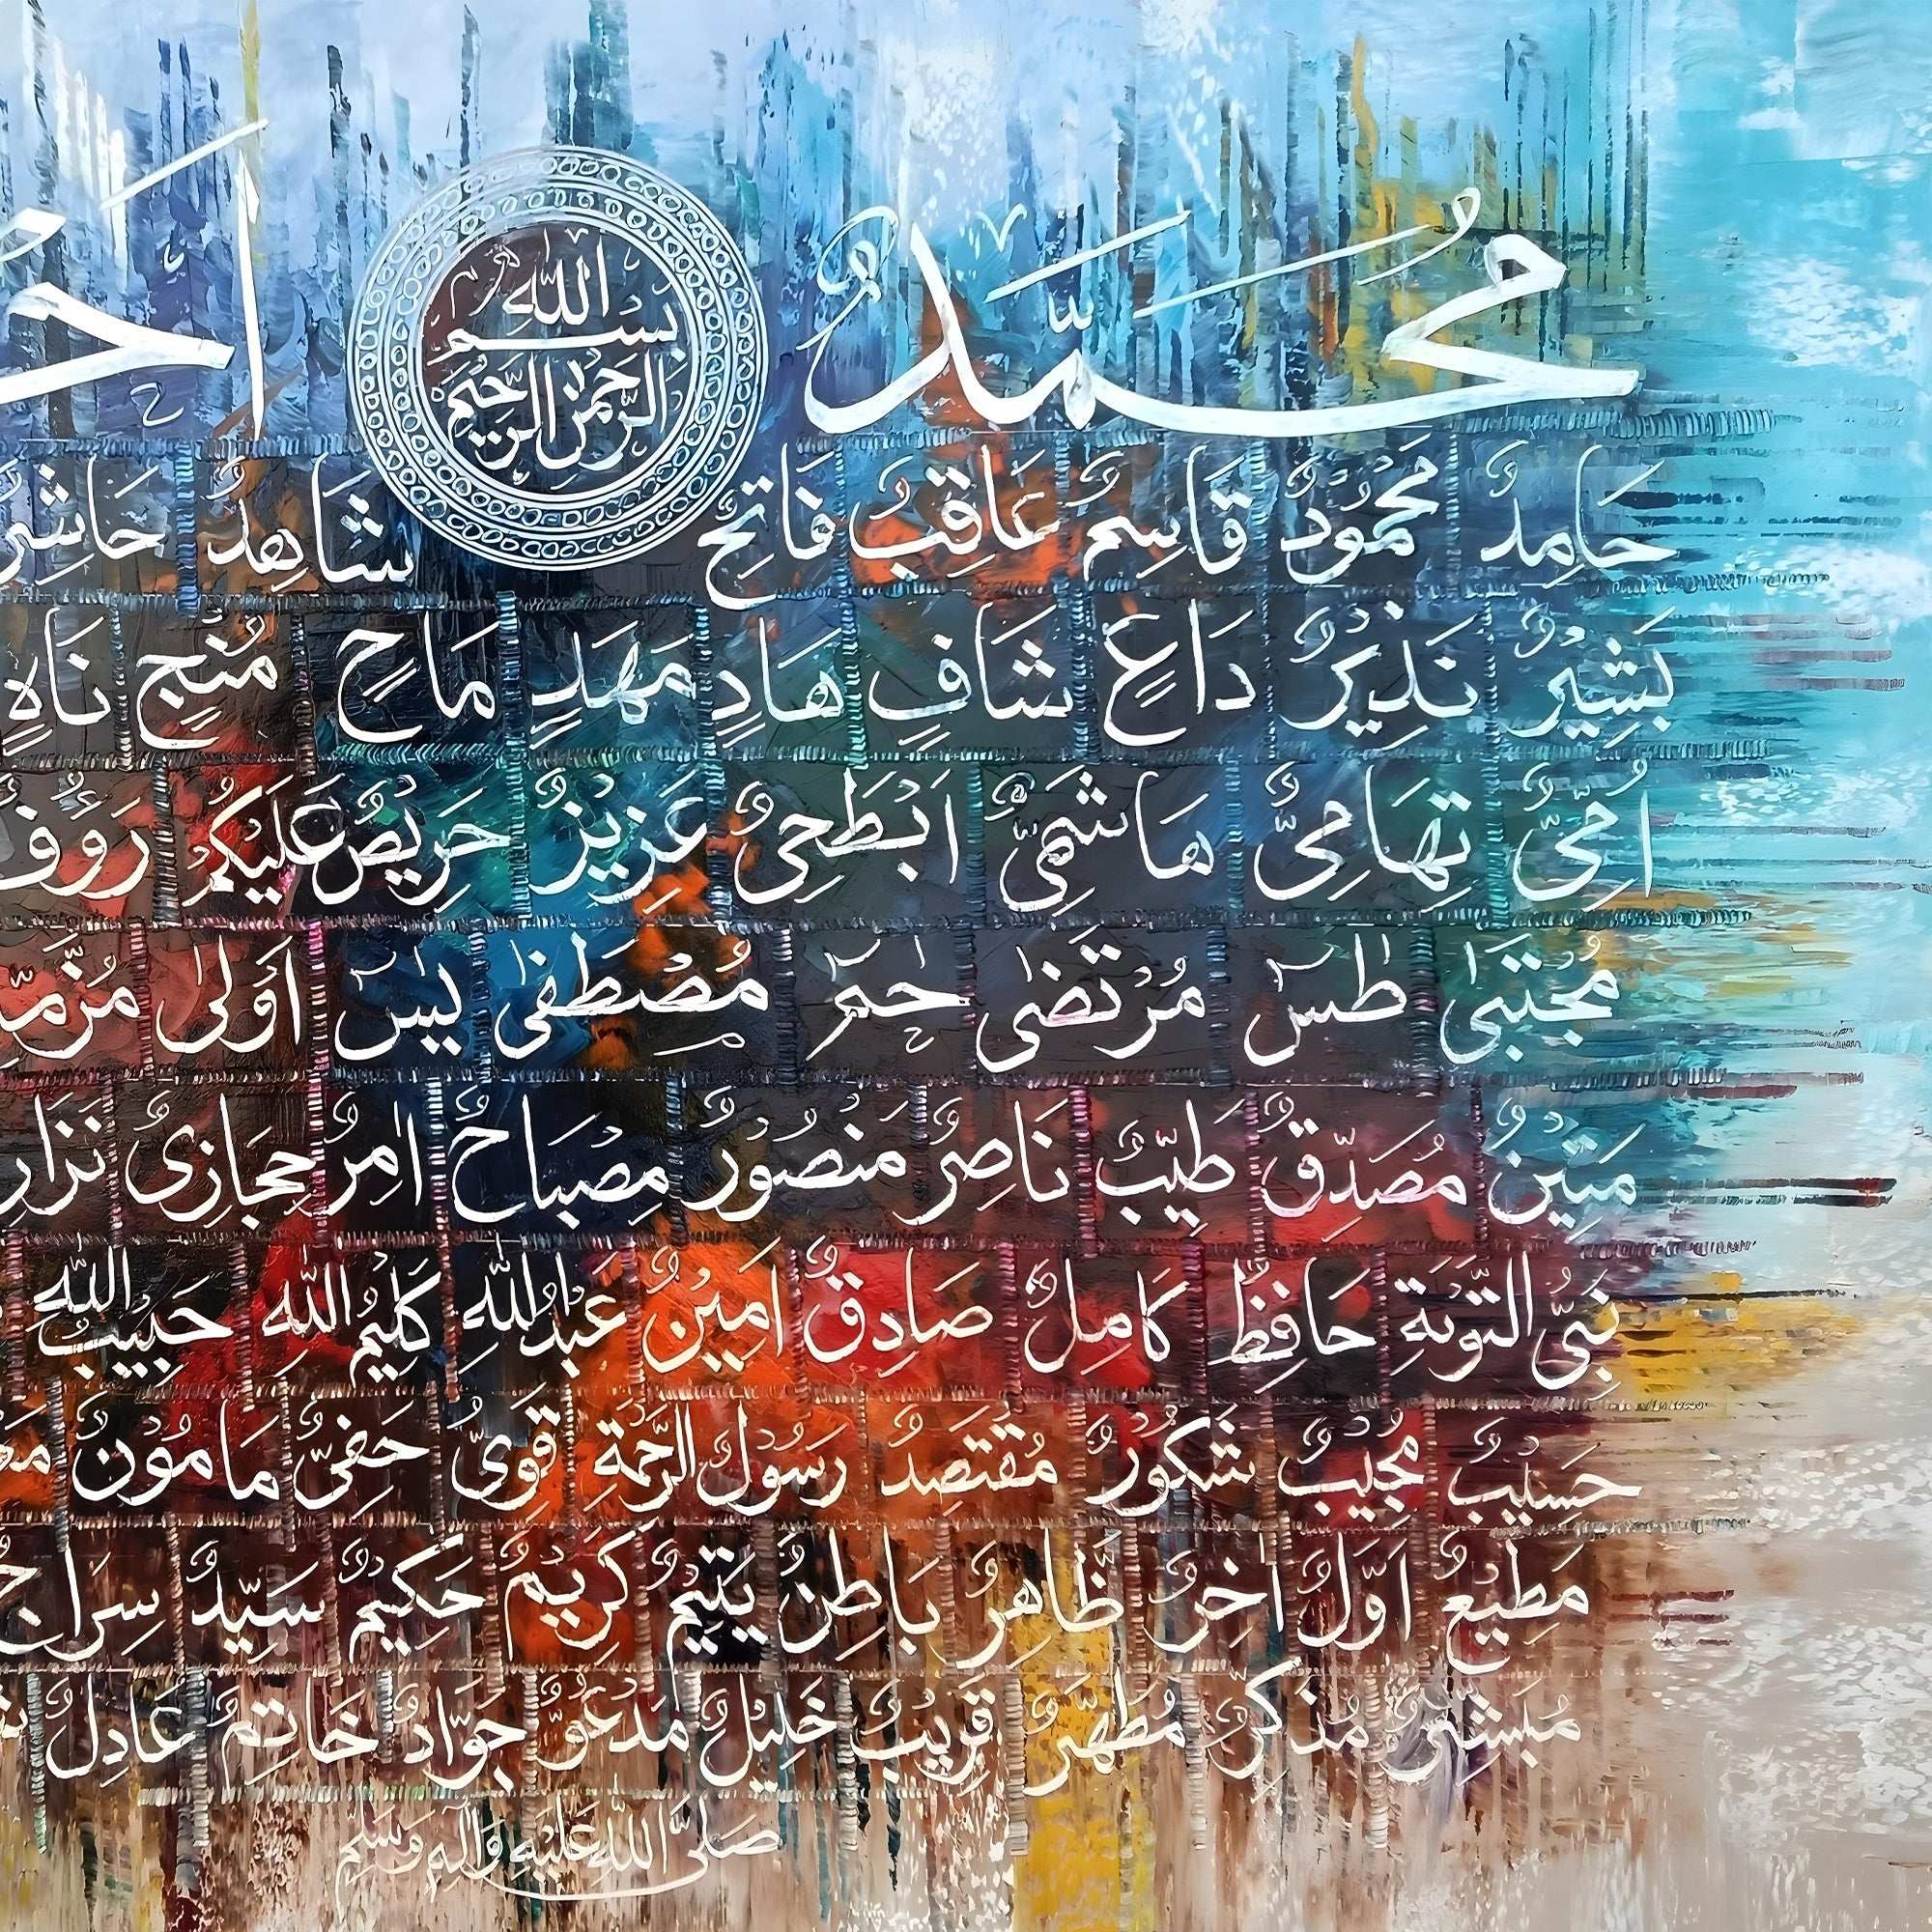 مُحَمَّدٌ
بِسْمِ اللّٰهِ الرَّحْمٰنِ الرَّحِيْمِ
حَامِدٌ مَحْمُوْدٌ قَاسِمٌ عَاقِبٌ فَاتِحٌ شَاهِدٌ حَاشِرٌ
بَشِيْرٌ نَذِيْرٌ دَاعٍ شَافٍ هَادٍ مَهْدٍ مَاحٍ مُنْجٍ نَاهٍ
اُمِّیٌّ تِهَامِیٌّ هَاشِمِیٌّ اَبْطَحِیٌّ عَزِيْزٌ حَرِيْصٌ عَلَيْكُمْ رَءُوْفٌ
مُجْتَبٰی طٰسٓ مُرْتَضٰی حٰمٓ مُصْطَفٰی يٰسٓ اَوْلٰی
مَتِيْنٌ مُصَدِّقٌ طَيِّبٌ نَاصِرٌ مَنْصُوْرٌ مِصْبَاحٌ اٰمِرٌ حِجَازِیٌّ
نَبِیُّ التَّوْبَةِ حَافِظٌ كَامِلٌ صَادِقٌ اَمِيْنٌ عَبْدُاللّٰهِ كَلِيْمُ اللّٰهِ حَبِيْبُ اللّٰهِ
حَسِيْبٌ مُجِيْبٌ شَكُوْرٌ مُقْتَصِدٌ رَسُوْلُ الرَّحْمَةِ قَوِیٌّ حَفِیٌّ مَامُوْنٌ
مُطِيْعٌ اَوَّلٌ اٰخِرٌ ظَاهِرٌ بَاطِنٌ يَتِيْمٌ كَرِيْمٌ حَكِيْمٌ سَيِّدٌ سِرَاجٌ
مُبَشِّرٌ مُذَكِّرٌ مُطَهَّرٌ قَرِيْبٌ خَلِيْلٌ مَدْعُوٌّ جَوَّادٌ خَاتِمٌ عَادِلٌ
صَلَّی اللّٰهُ عَلَيْهِ وَاٰلِهٖ وَسَلَّمَ